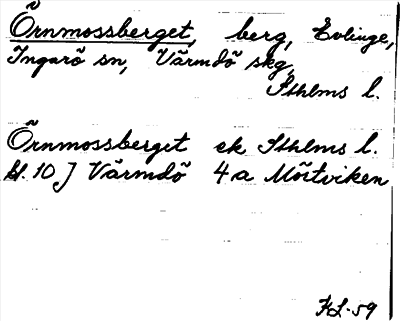 Örnmossberget, berg, Evlinge,
Ingarö sn, Värmdö skg,
Sthlms l.
Örnmossberget ek Sthlms l.
bl. 10 J Värmdö 4a Mörtviken
KL-59